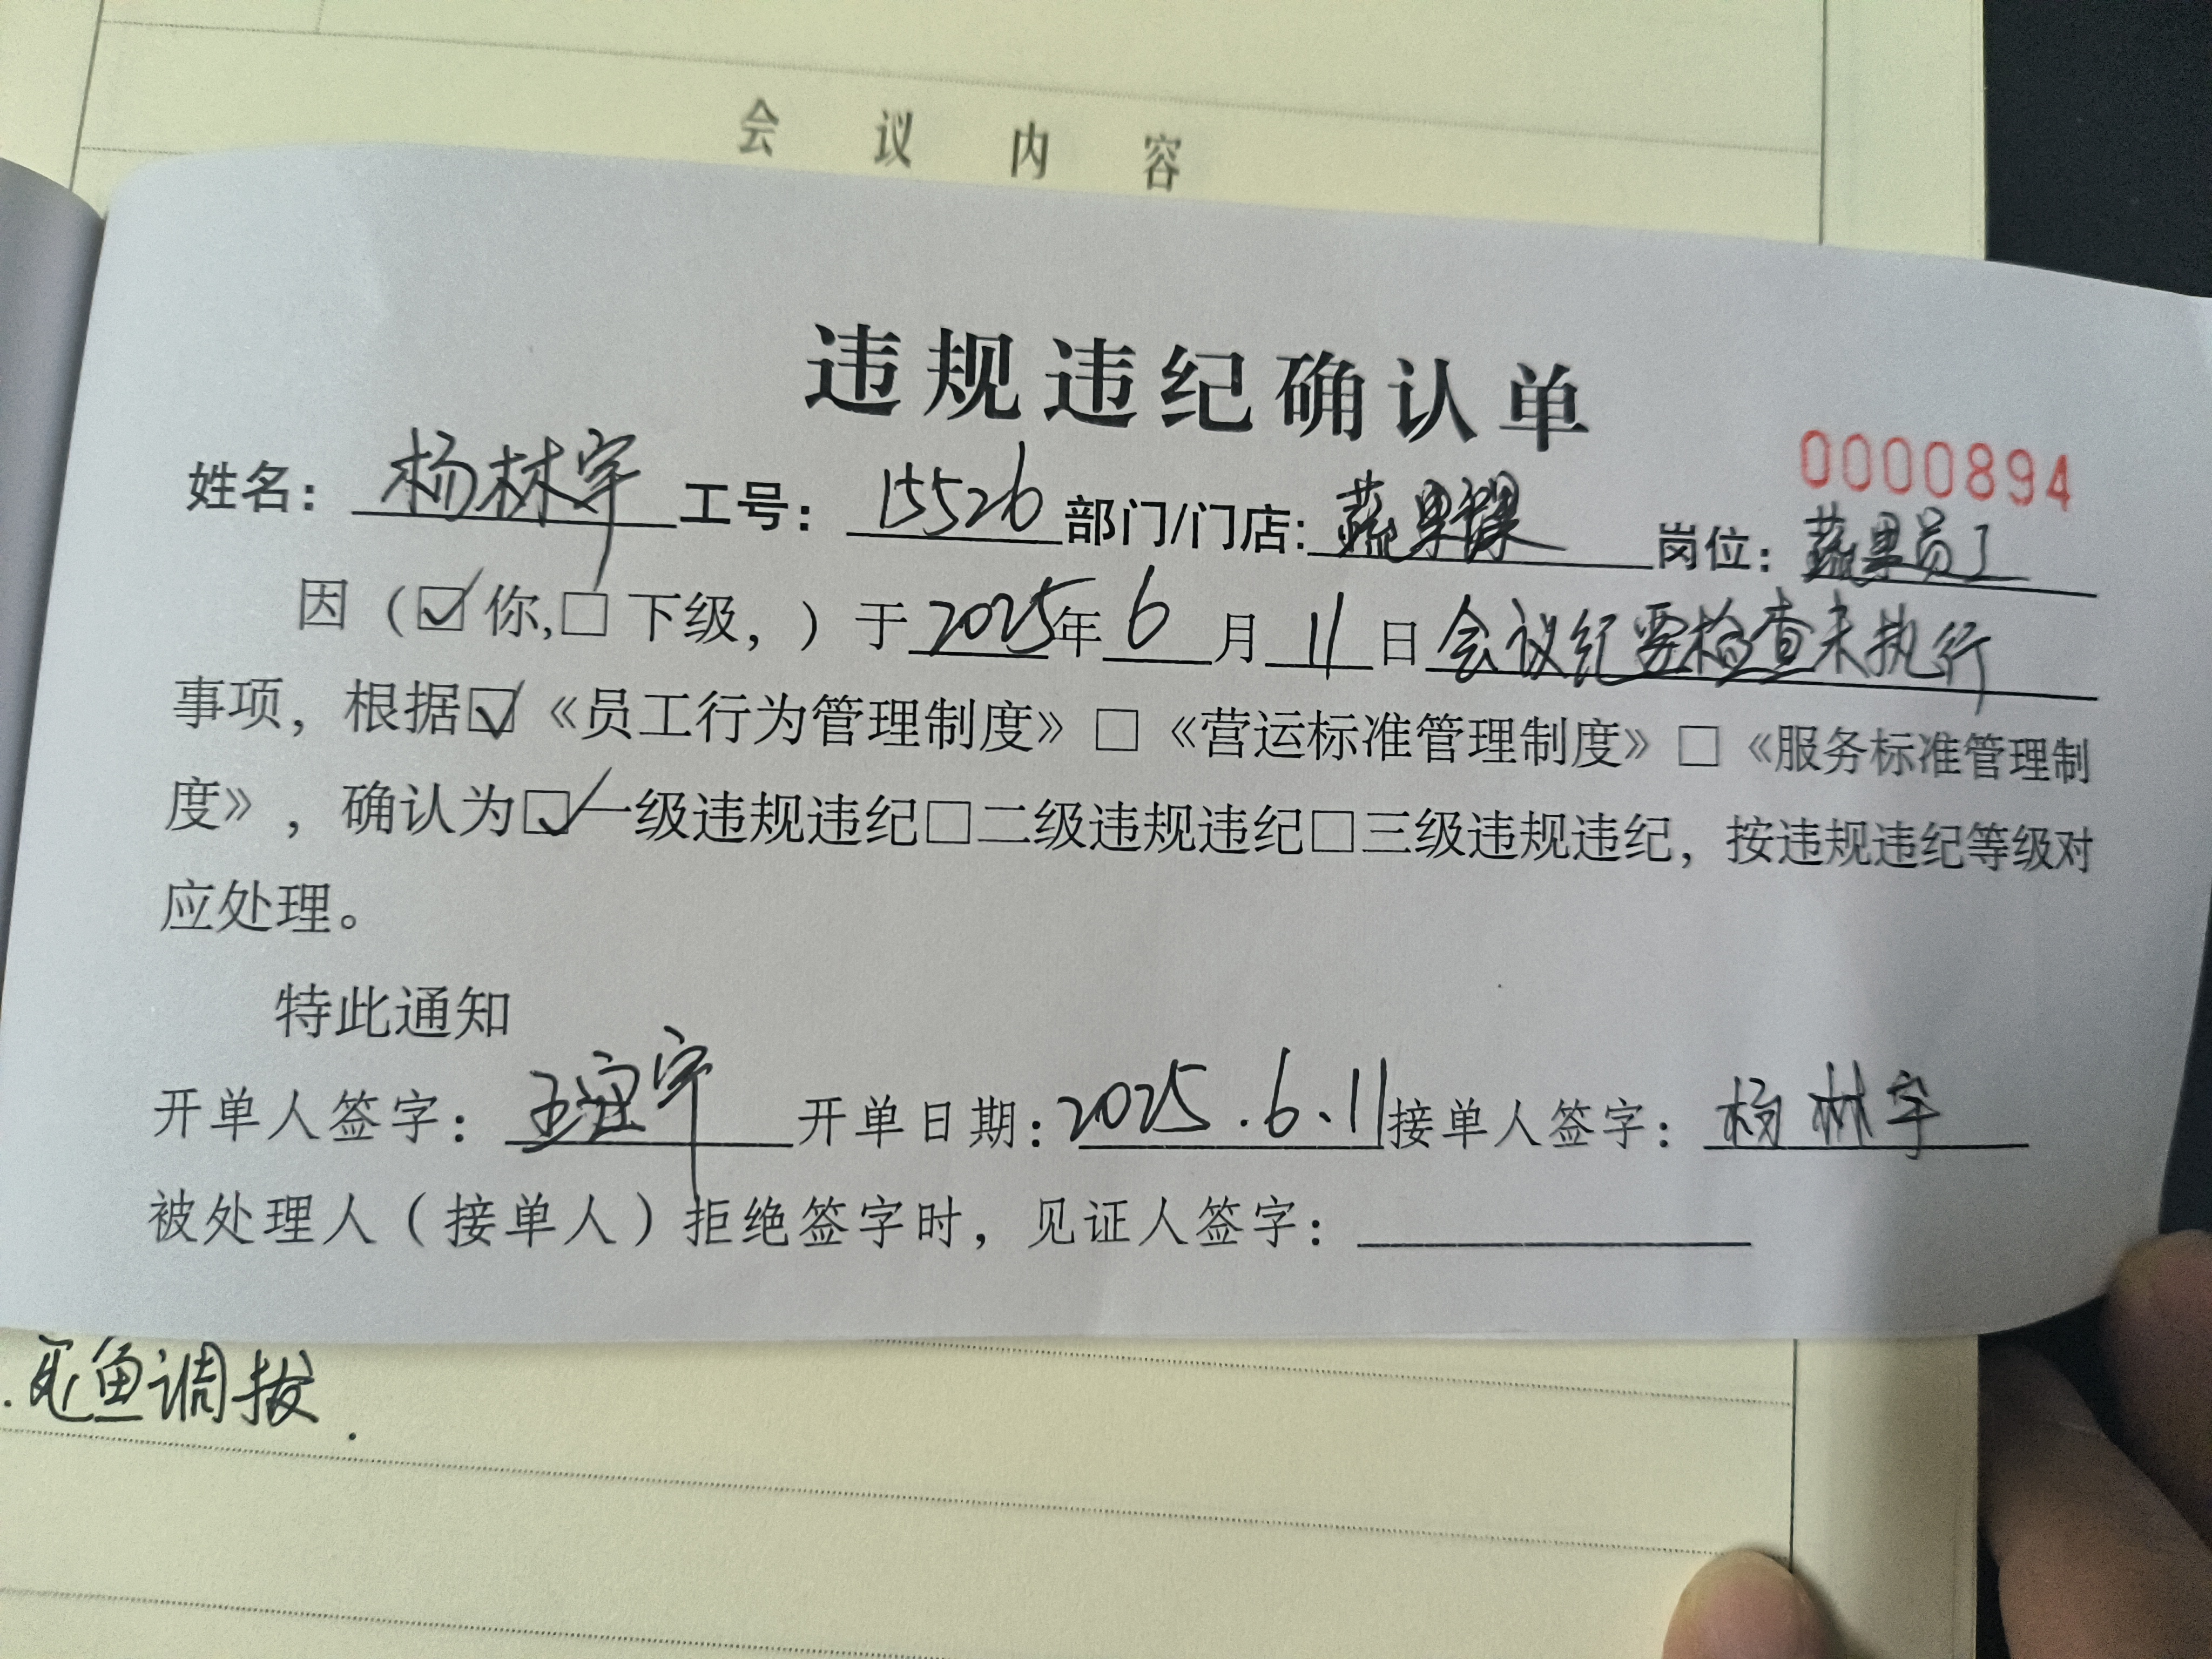 会 议 内 容
违规违纪确认单
0000894
姓名：杨林宇 工号：15526 部门/门店：蔬果课 岗位：蔬果员工
因（☑你,☐下级，）于2025年6月11日会议纪要检查未执行
事项，根据☑《员工行为管理制度》☐《营运标准管理制度》☐《服务标准管理制
度》，确认为☑一级违规违纪☐二级违规违纪☐三级违规违纪，按违规违纪等级对
应处理。
特此通知
开单人签字：王宇 开单日期：2025.6.11 接单人签字：杨林宇
被处理人（接单人）拒绝签字时，见证人签字：
鱼调拔.